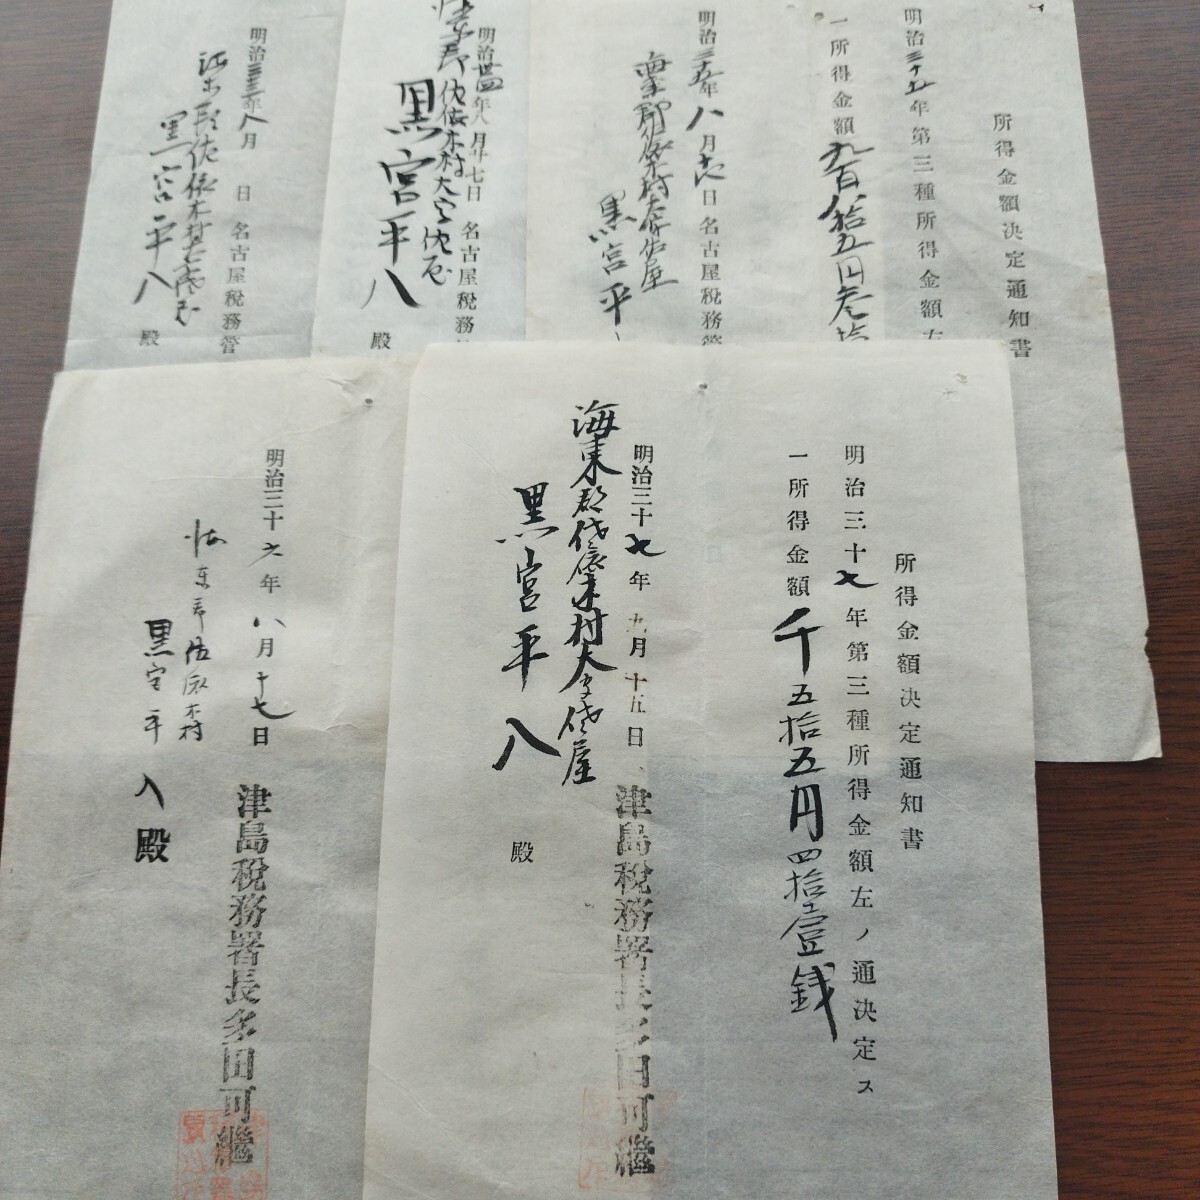 所得金額決定通知書
明治三十五年第三種所得金額左
一所得金額九百八拾五円参拾
明治三十五年八月 日名古屋税務管
黒宮平
明治 年八月廿七日 名古屋税務
黒宮平八
殿
明治三三年八月 日 名古屋税務管
黒宮平八
殿
所得金額决定通知書
明治三十七年第三種所得金額左ノ通決定ス
一所得金額千五拾五円四拾壹銭
明治三十七年九月十五日
津島税務署長多田可繼
海東郡佐依木村大字佐屋
黒宮平八
殿
明治三十六年八月十七日
津島税務署長多田可繼
海東郡佐依木村
黒宮平八殿